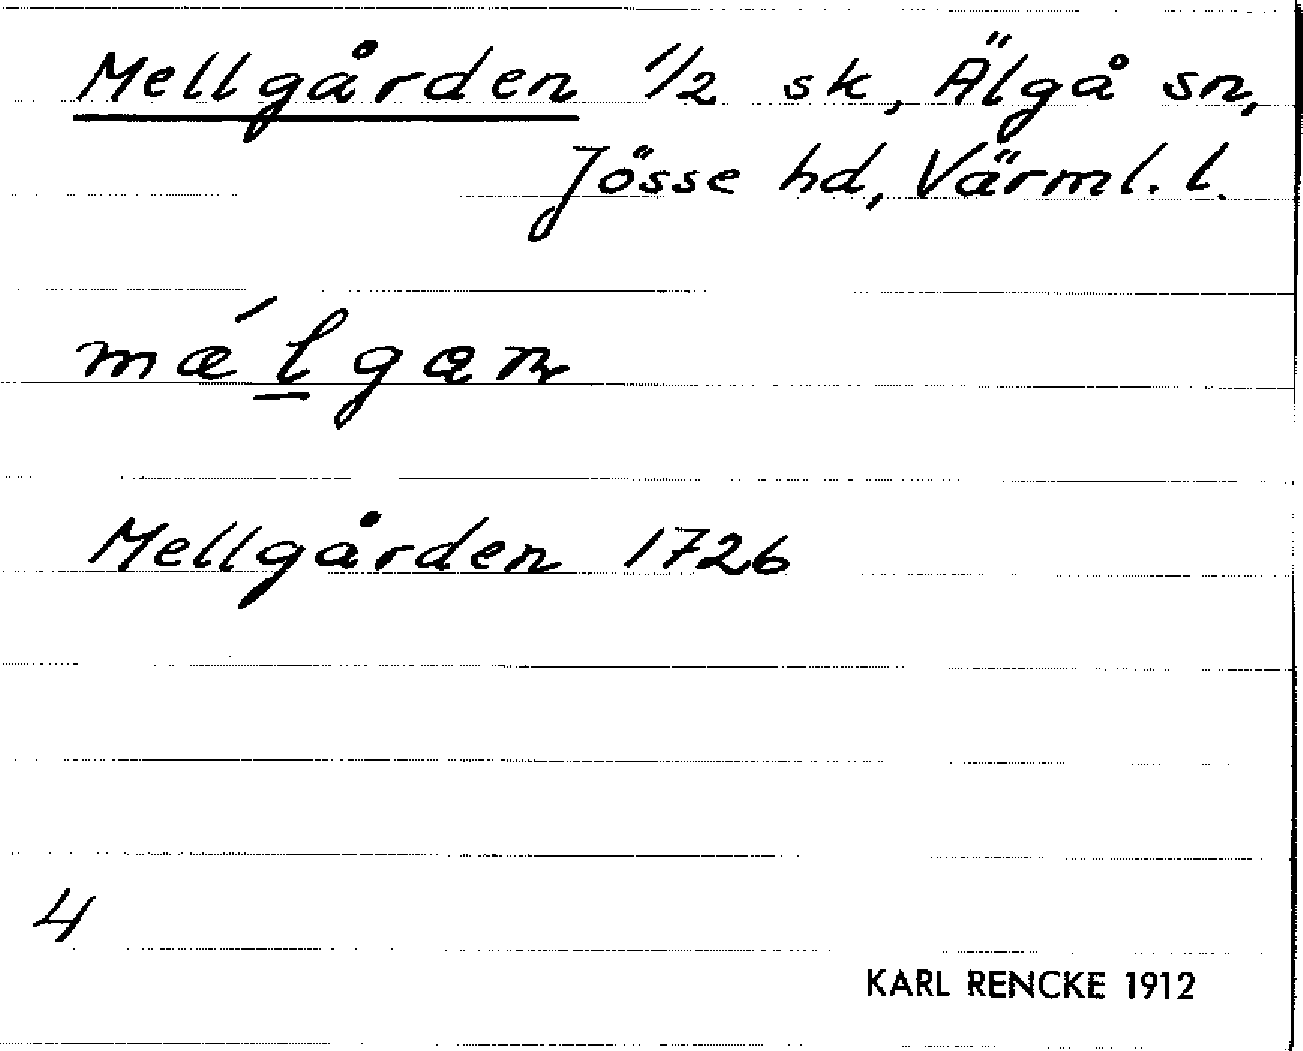 Mellgården 1/2 sk, Älgå sn,
Jösse hd, Värml. l.
mæ´l̲gaɳ
Mellgården 1726
4
KARL RENCKE 1912